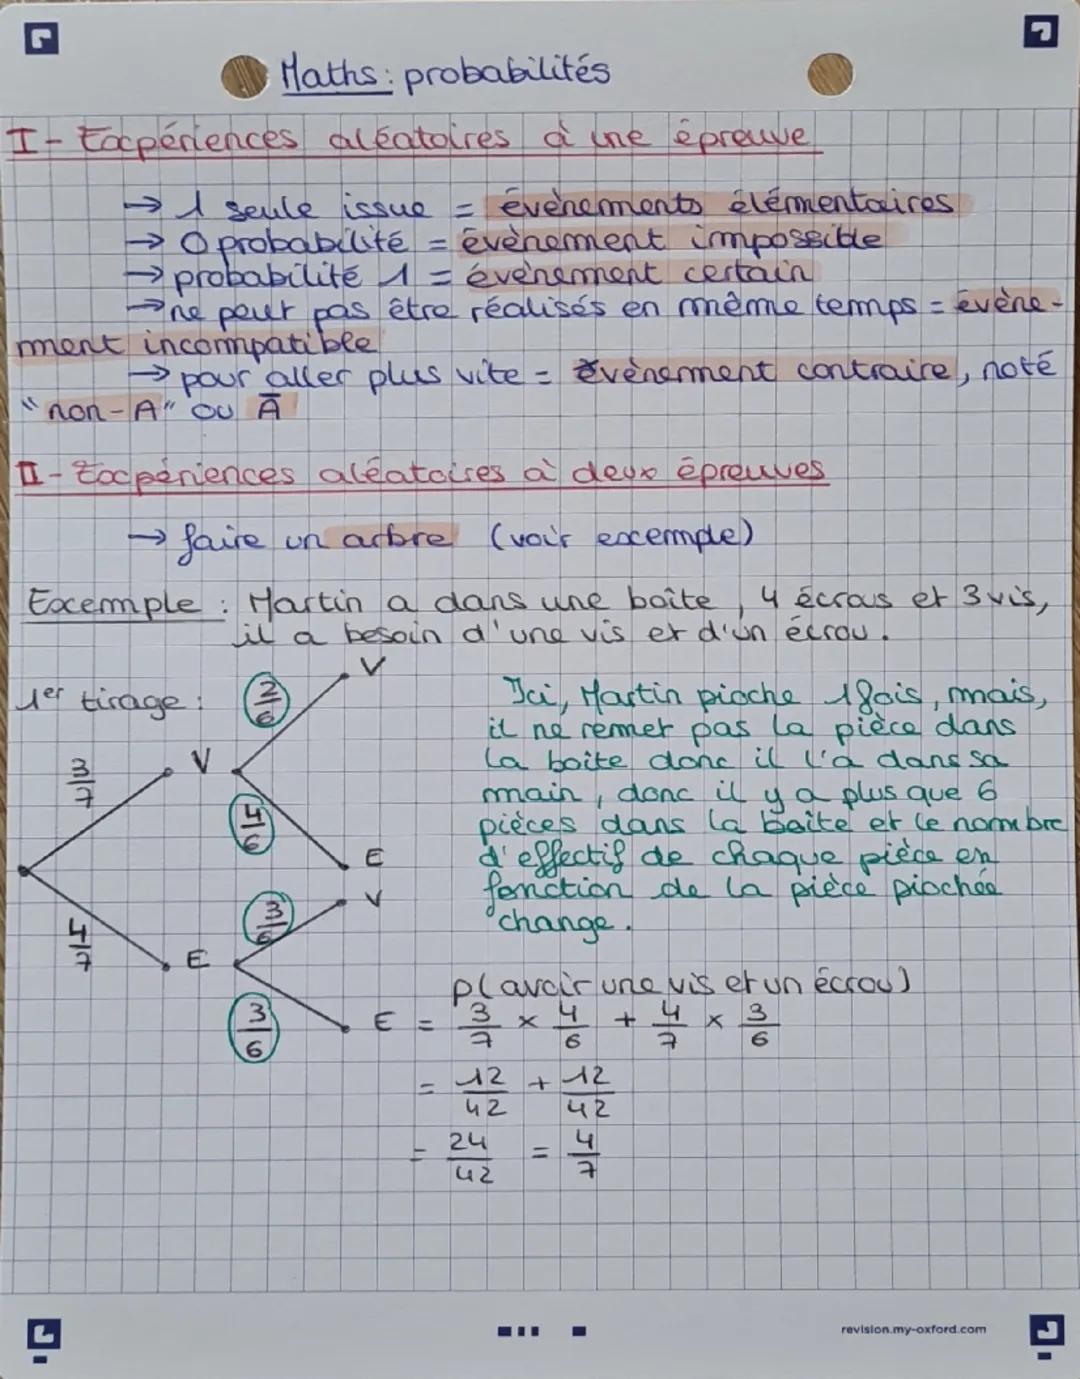 Maths : probabilités
I - Expériences aléatoires à une épreuve
→ 1 seule issue = évènements élémentaires
→ 0 probabilité = évènement impossible
→ probabilité 1 = évènement certain
→ ne peut pas être réalisés en même temps = évène-
ment incompatible
→ pour aller plus vite = évènement contraire, noté
"non-A" ou Ā
II - Expériences aléatoires à deux épreuves
→ faire un arbre (voir exemple)
Exemple : Martin a dans une boîte, 4 écrous et 3 vis,
il a besoin d'une vis et d'un écrou.
1er tirage :
3/7 V
2/6 V
4/6 E
4/7 E
3/6 V
3/6 E
Ici, Martin pioche 1 fois, mais,
il ne remet pas la pièce dans
la boîte donc il l'a dans sa
main, donc il y a plus que 6
pièces dans la boîte et le nombre
d'effectif de chaque pièce en
fonction de la pièce piochée
change.
p(avoir une vis et un écrou)
= 3/7 × 4/6 + 4/7 × 3/6
= 12/42 + 12/42
= 24/42 = 4/7
revision.my-oxford.com